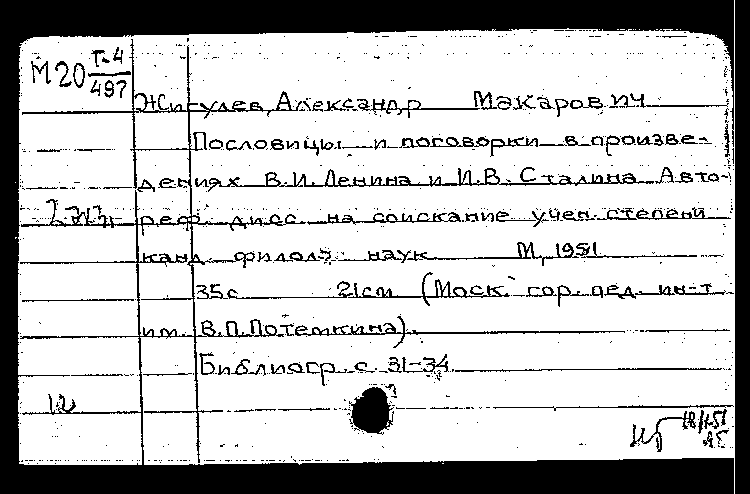 М20 Т.4
497
Жигулев, Александр Макарович
Пословицы и поговорки в произве-
дениях В.И. Ленина и И.В. Сталина. Авто-
2 экз.
реф. дисс. на соискание учен. степени
канд. филол. наук М, 1951
35с 21см (Моск. гор. пед. ин-т
им. В.П. Потемкина).
Библиогр. с. 31-34
12